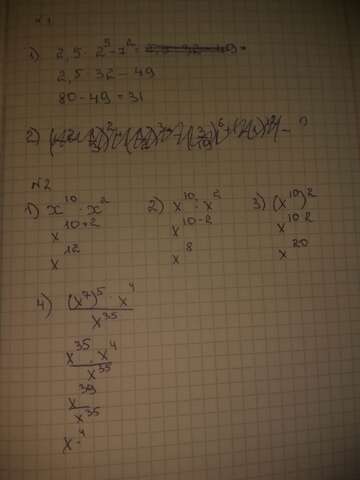 №1
1) 2,5 · 2⁵ - 7² =
2,5 · 32 - 49
80 - 49 = 31
2)
№2
1) x¹⁰ · x² 2) x¹⁰ : x² 3) (x¹⁰)²
x¹⁰⁺² x¹⁰⁻² x¹⁰·²
x¹² x⁸ x²⁰
4) (x⁷)⁵ · x⁴
x³⁵
x³⁵ · x⁴
x³⁵
x³⁹
x³⁵
x⁴